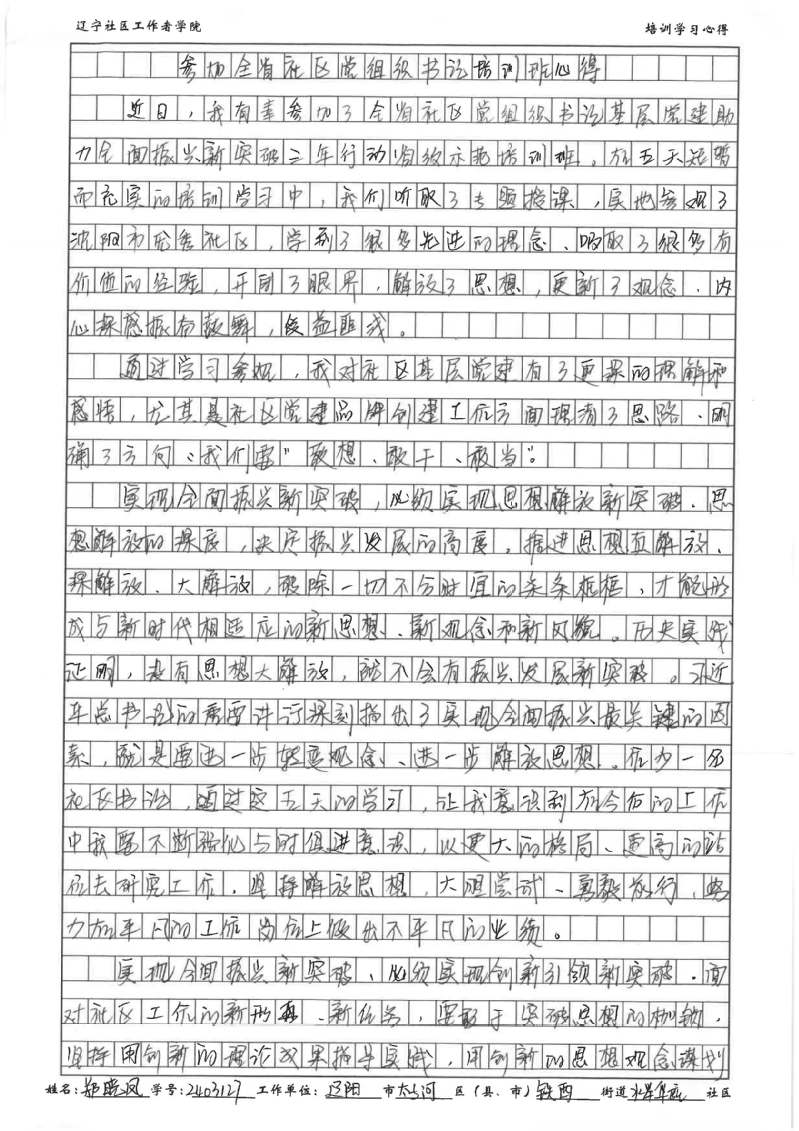 辽宁社区工作者学院 培训学习心得
参加全省社区党组织书记培训班心得
近日,我有幸参加了全省社区党组织书记基层党建助
力全面振兴新突破三年行动省级示范培训班。在五天短暂
而充实的培训学习中,我们听取了专题授课,实地参观了
沈阳市优秀社区,学到了很多先进的理念、吸取了很多有
价值的经验,开阔了眼界,解放了思想,更新了观念.内
心深感振奋鼓舞,使益匪浅。
通过学习参观,我对社区基层党建有了更深的理解和
感悟,尤其是社区党建品牌创建工作方面理清了思路、明
确了方向、我们要"敢想、敢干、敢当"。
实现全面振兴新突破,必须实现思想解放新突破.思
想解放的深度,决定振兴发展的高度。推进思想再解放、
深解放、大解放,破除一切不合时宜的条条框框,才能形
成与新时代相适应的新思想、新观念和新风貌。历史实践
证明,没有思想大解放,就不会有振兴发展新突破。习近
平总书记的重要讲行深刻指出了实现全面振兴最关键的因
素,就是要进一步转变观念、进一步解放思想。作为一名
社区书记,通过这五天的学习,让我意识到在今后的工作
中我要不断强化与时俱进意识,以更大的格局、更高的站
位去研究工作.坚持解放思想,大胆尝试、勇毅前行,努
力在平凡的工作岗位上做出不平凡的业绩。
实现全面振兴新突破、必须实现创新引领新突破.面
对社区工作的新形势、新任务,要敢于突破思想的枷锁,
坚持用创新的理论效果指导实践,用创新的思想观念谋划
姓名:郑晓凤 学号:2403127 工作单位:辽阳 市 太子河 区(县、市) 铁西 街道 社区